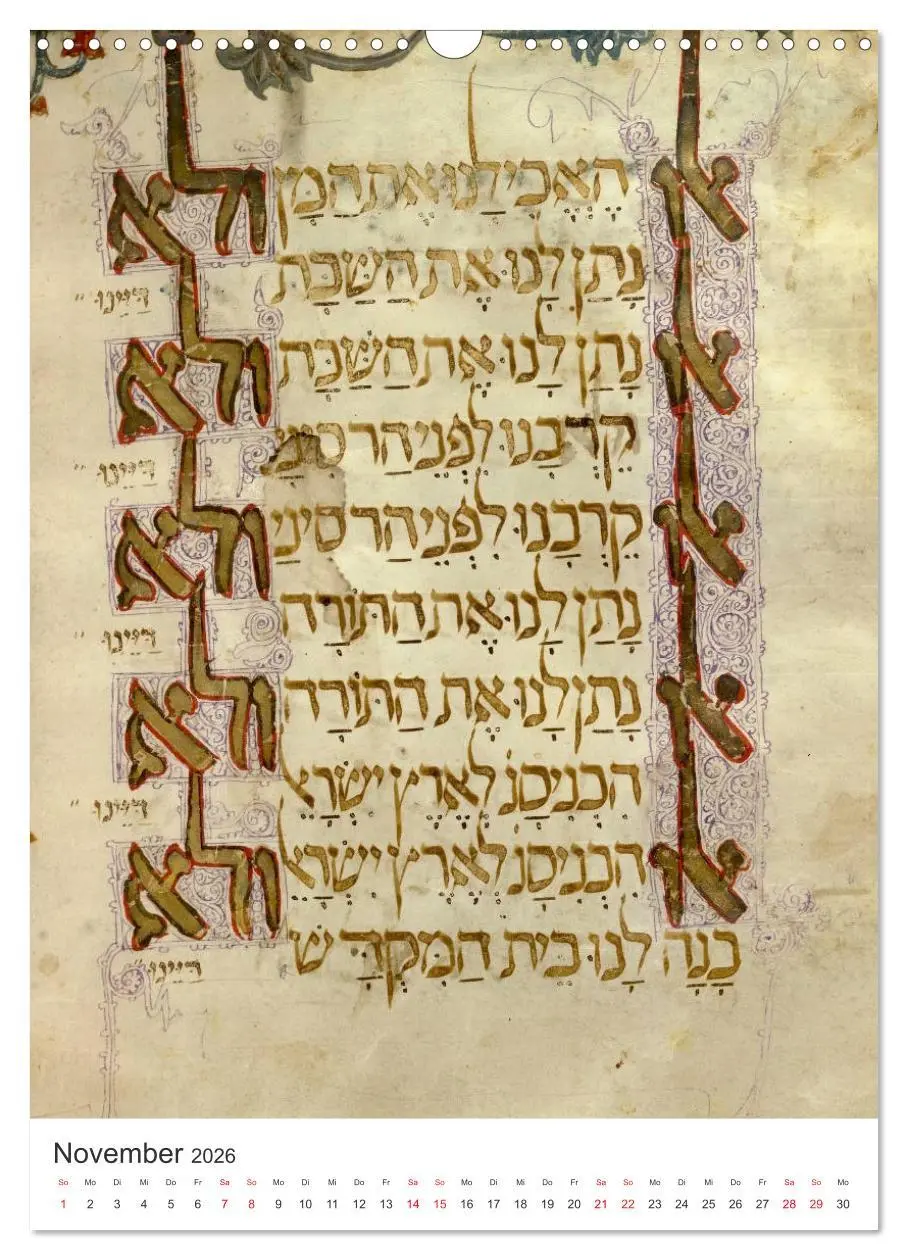 אל האכילנו את המן ולא
נתן לנו את השבת דיינו
אל נתן לנו את השבת ולא
קרבנו לפני הר סיני דיינו
אל קרבנו לפני הר סיני ולא
נתן לנו את התורה דיינו
אל נתן לנו את התורה ולא
הכניסנ לארץ ישרא דיינו
אל הכניסנ לארץ ישרא ולא
בנה לנו בית המקד ש דיינו
November 2026
So Mo Di Mi Do Fr Sa So Mo Di Mi Do Fr Sa So Mo Di Mi Do Fr Sa So Mo Di Mi Do Fr Sa So Mo
1 2 3 4 5 6 7 8 9 10 11 12 13 14 15 16 17 18 19 20 21 22 23 24 25 26 27 28 29 30